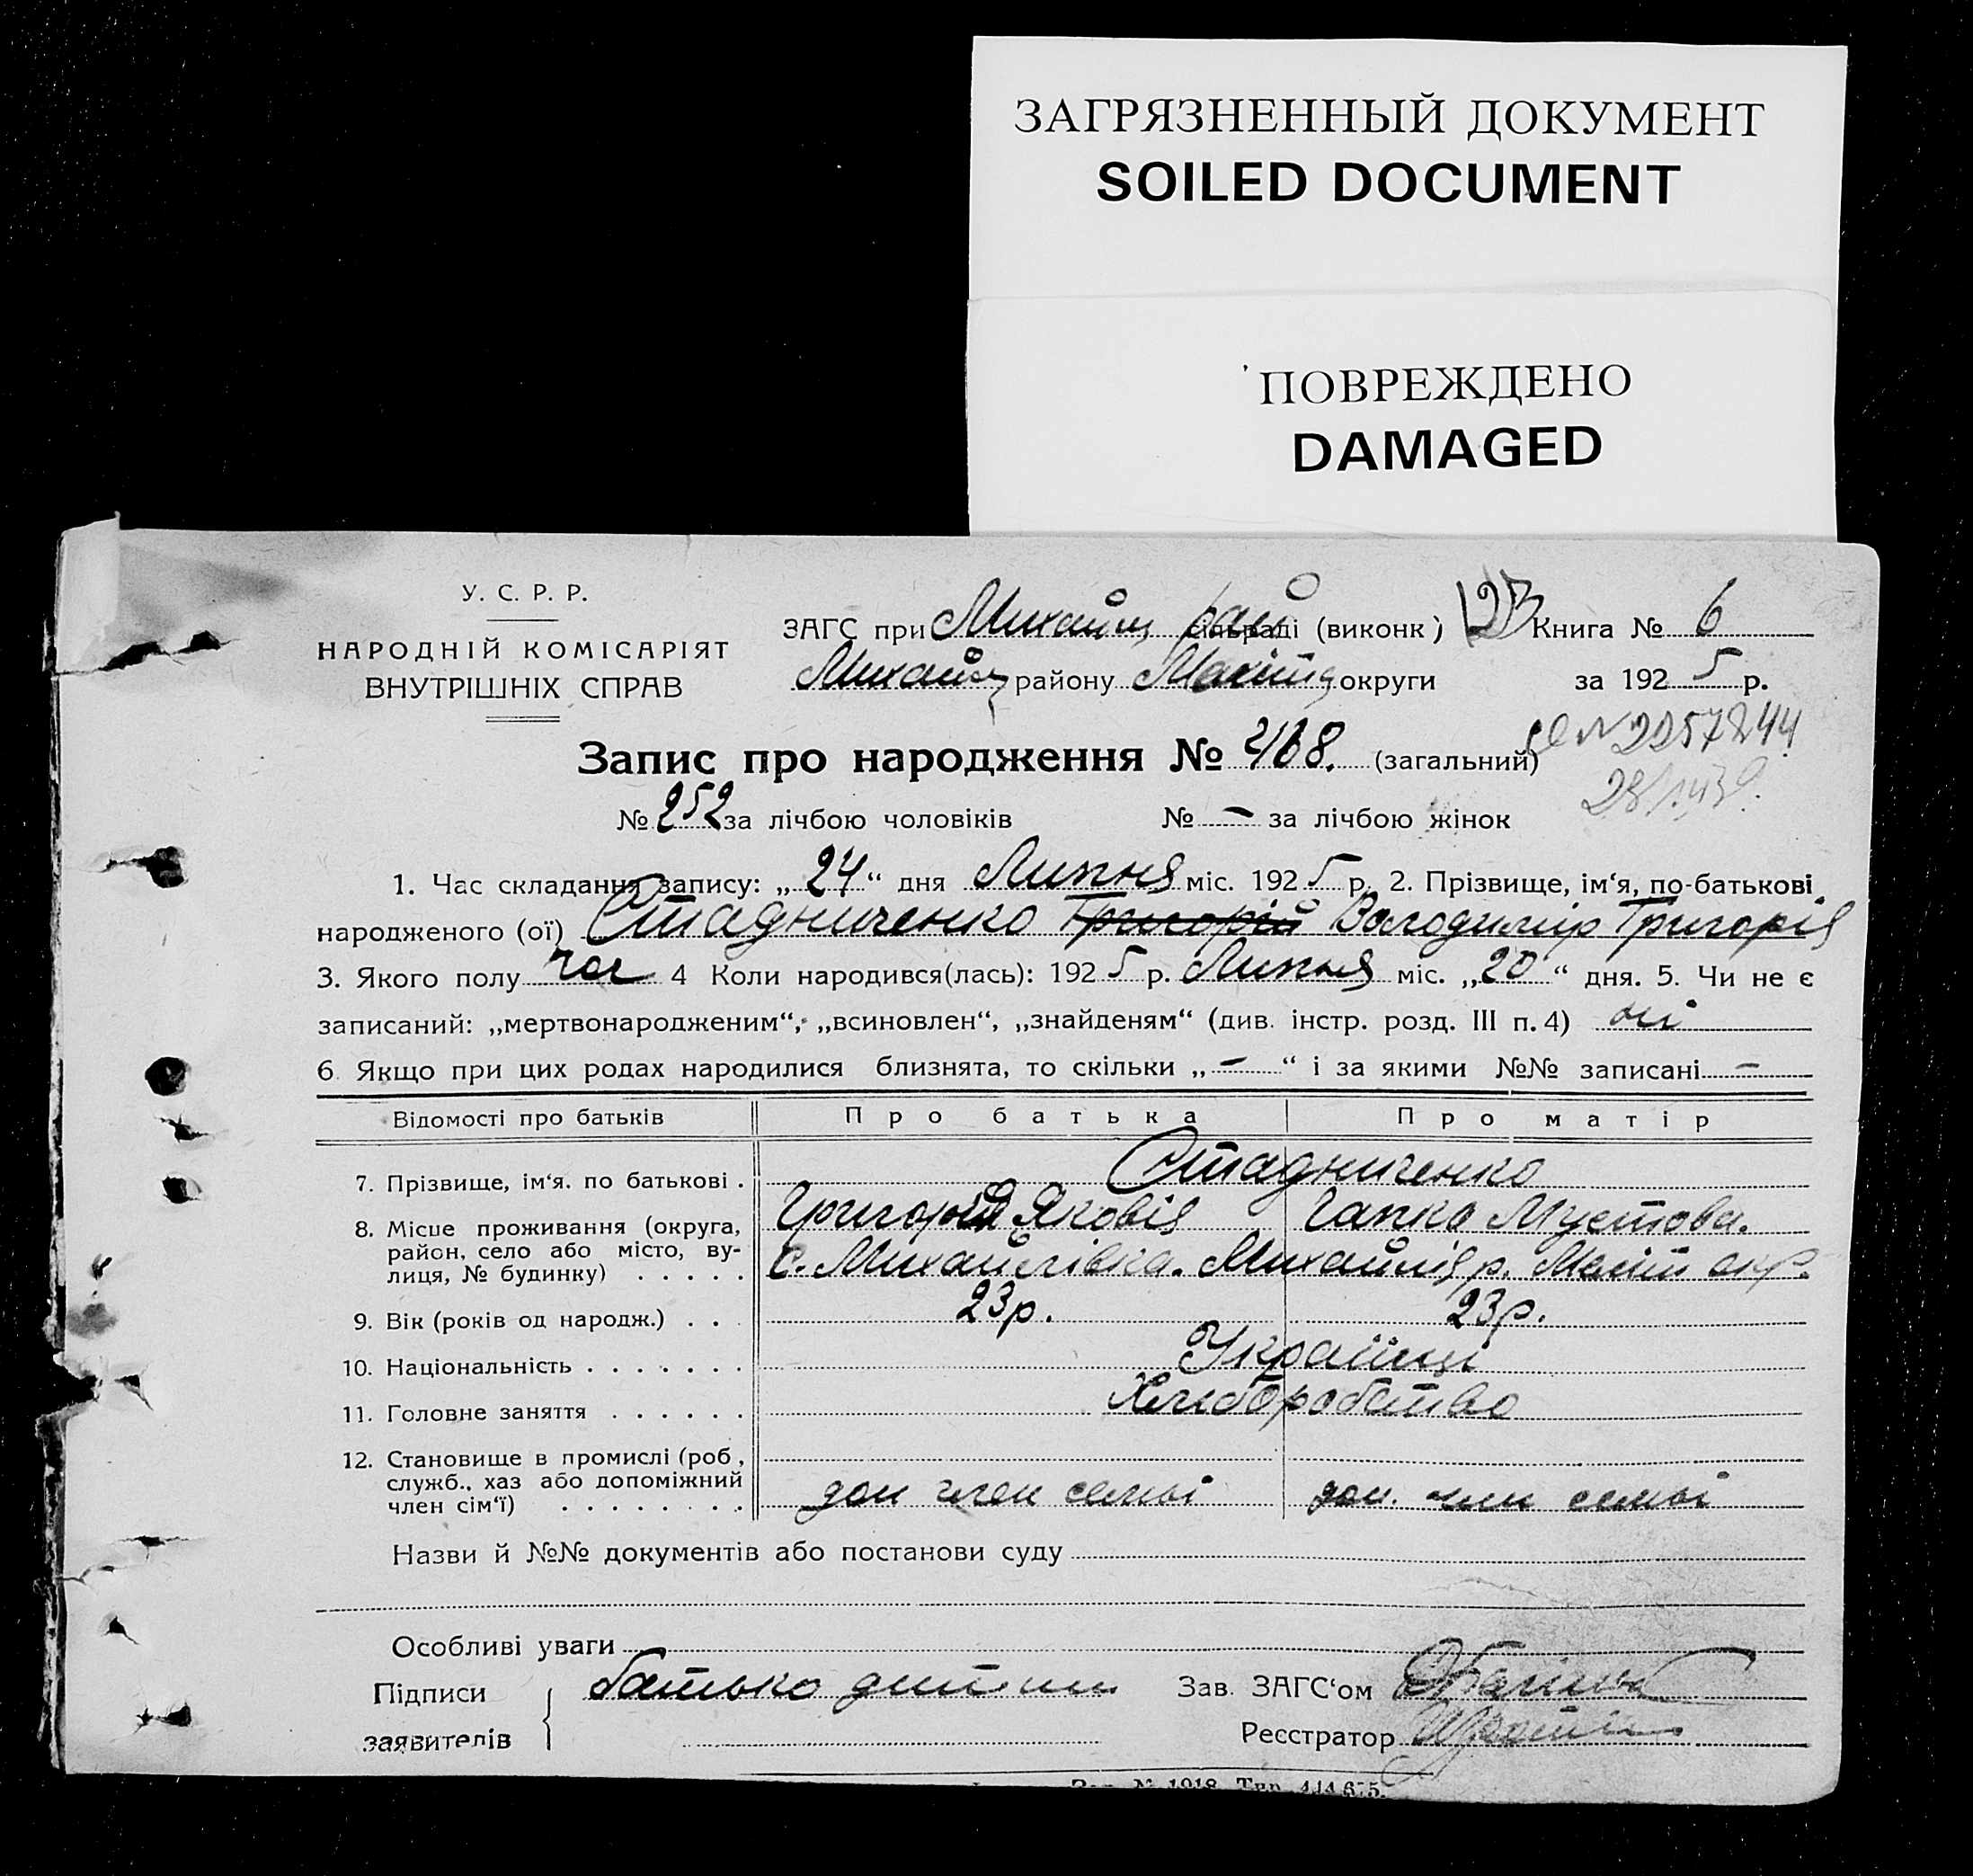 ЗАГРЯЗНЕННЫЙ ДОКУМЕНТ
SOILED DOCUMENT
ПОВРЕЖДЕНО
DAMAGED
У. С. Р. Р.
НАРОДНІЙ КОМІСАРІЯТ
ВНУТРІШНІХ СПРАВ
ЗАГС при Михайл рай сільраді (виконк) Книга № 6
Михайл району Меліт округи за 1925 р.
Запис про народження № 468. (загальний)
№ 252 за лічбою чоловіків № – за лічбою жінок
1. Час складання запису: „24“ дня Липня міс. 1925 р. 2. Прізвище, ім‘я, по-батькові
народженого (ої) Стадниченко Григорій Володимир Григорія
3. Якого полу чол 4 Коли народився(лась): 1925 р. Липня міс. „20“ дня. 5. Чи не є
записаний: „мертвонародженим“, „всиновлен“, „знайденям“ (див. інстр. розд. III п. 4) ні
6. Якщо при цих родах народилися близнята, то скільки „–“ і за якими №№ записані –
Відомості про батьків Про батька Про матір
7. Прізвище, ім‘я. по батькові . Стадниченко
Григорія Яковія Гапка
8. Місце проживання (округа,
район, село або місто, ву-
лиця, № будинку) . . . . . с. Михайлівка. Михайлів р. Меліт окр.
9. Вік (років од народж.) . . . 23 р. 23 р.
10. Національність . . . . . . . Українці
11. Головне заняття . . . . . . Хліборобство
12. Становище в промислі (роб.,
служб., хаз або допоміжний
член сім‘ї) . . . . . . . . доп член семьі доп. член семьі
Назви й №№ документів або постанови суду
Особливі уваги
Підписи батько дитини Зав. ЗАГС‘ом
заявителів Реєстратор
№ 1918